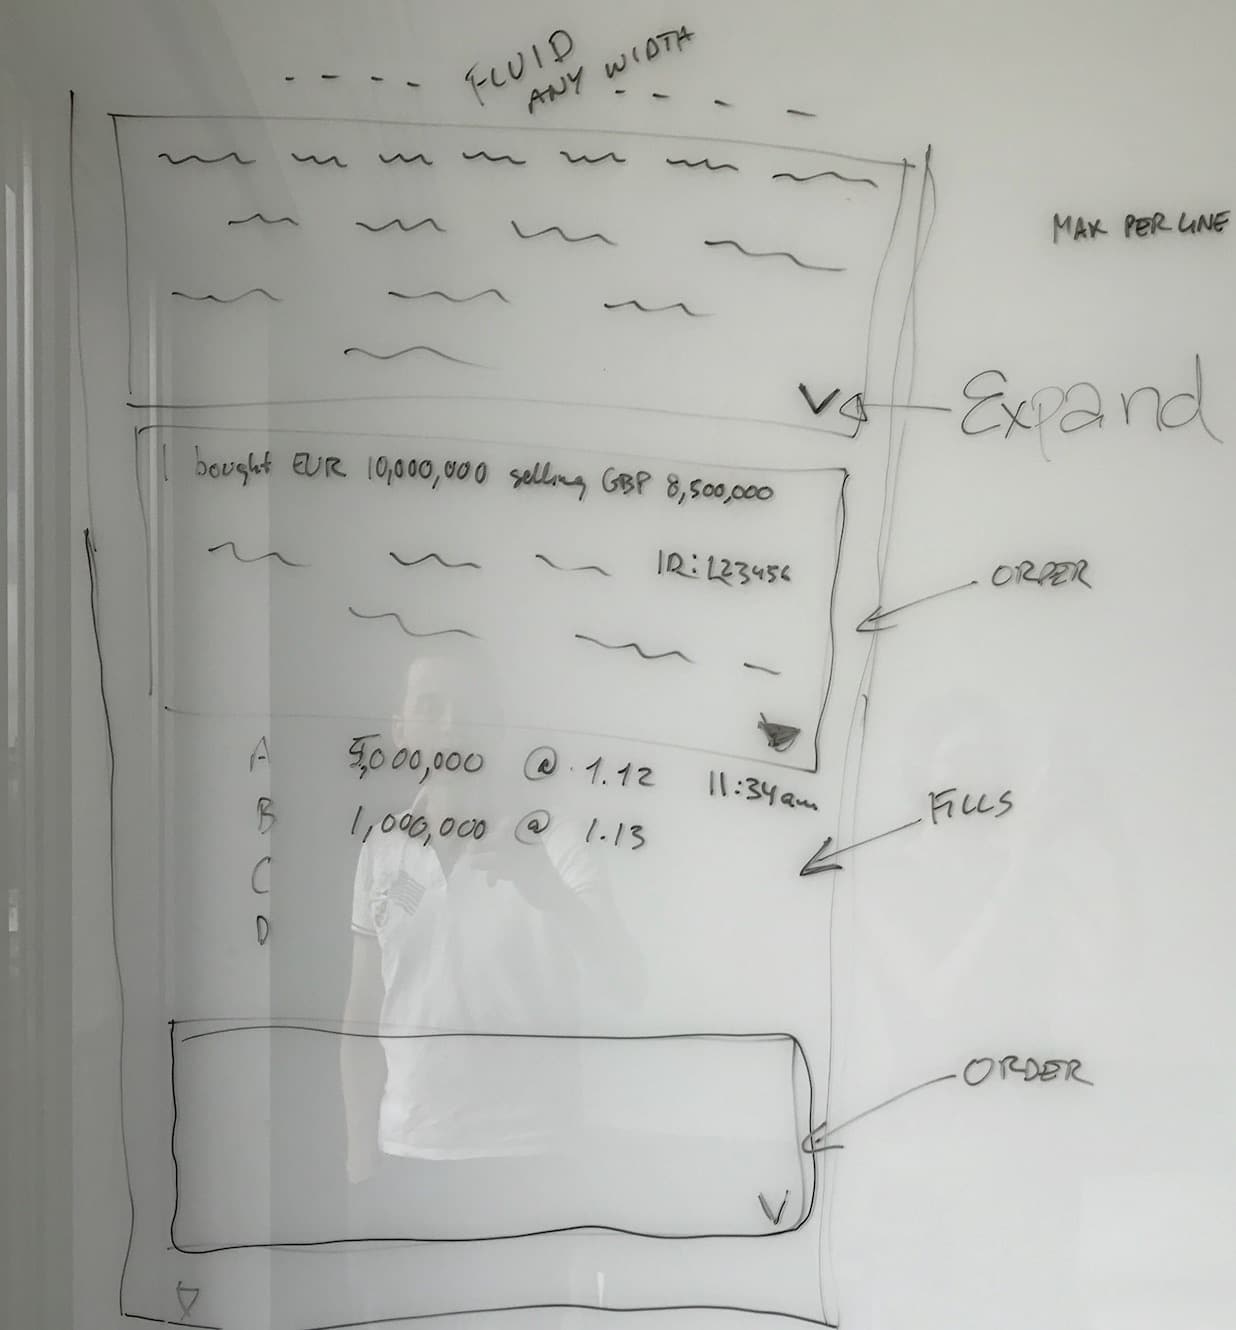 FLUID
ANY WIDTH
MAX PER LINE
Expand
I bought EUR 10,000,000 selling GBP 8,500,000
ID: 123456
ORDER
A 5,000,000 @ 1.12 11:34am
FILLS
B 1,000,000 @ 1.13
C
D
ORDER